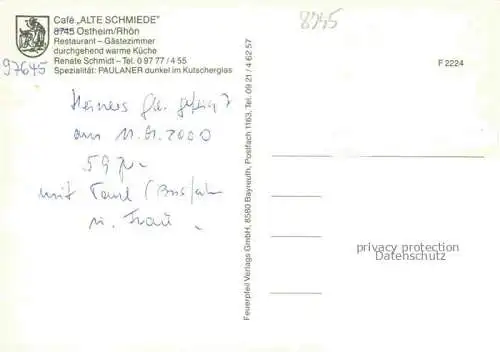 Café „ALTE SCHMIEDE"
8745 Ostheim/Rhön
Restaurant – Gästezimmer
durchgehend warme Küche
Renate Schmidt – Tel. 0 97 77 / 4 55
Spezialität: PAULANER dunkel im Kutscherglas
97645
8745
F 2224
am 11.01.2000
mit
u. Frau
Feuerpfeil Verlags GmbH, 8580 Bayreuth, Postfach 1163, Tel. 09 21 / 4 62 57
privacy protection
Datenschutz